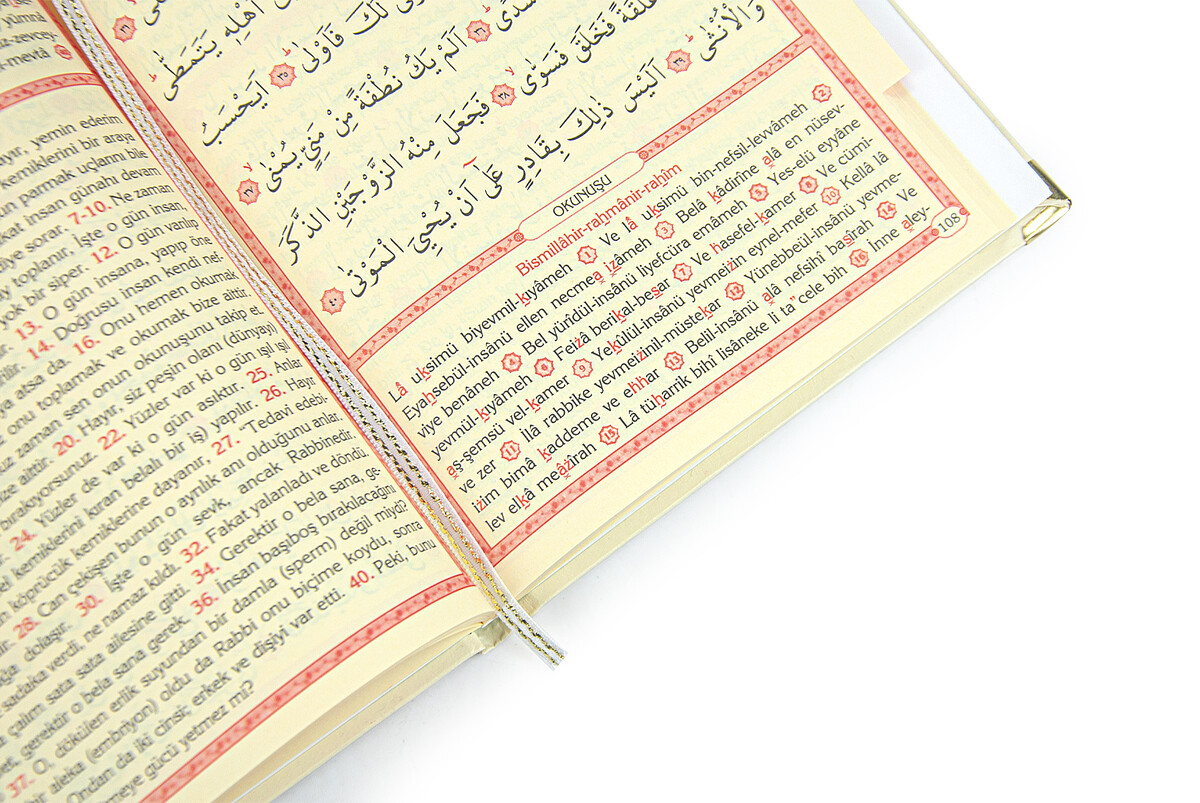 yümnâ
-zevcey-
-mevtâ
ayır, yemin ederim
kemiklerini bir araya
parmak uçlarını bile
insan günahı devam
diye sorar. 7-10. Ne zaman
toplanır, İşte o gün insan,
yok bir siper. 12. O gün varılıp
13. O gün insana, yapıp öne
14. Doğrusu insan kendi nef-
atsa da. 16. Onu hemen okumak
onu toplamak ve okumak bize aittir.
zaman sen onun okunuşunu takip et.
aittir. 20. Hayır, siz peşin olanı (dünyayı)
bırakıyorsunuz. 22. Yüzler var ki o gün ışıl ışıl
24. Yüzler de var ki o gün asıktır. 25. Anlar
kemiklerini kıran belalı bir iş) yapılır. 26. Hayır
köprücük kemiklerine dayanır, 27. "Tedavi edebi-
28. Can çekişen bunun o ayrılık anı olduğunu anlar.
dolaşır. 30. İşte o gün sevk, ancak Rabbinedir.
sadaka verdi, ne namaz kıldı. 32. Fakat yalanladı ve döndü.
çalım sata sata ailesine gitti. 34. Gerektir o bela sana, ge-
gerektir o bela sana gerek. 36. İnsan başıboş bırakılacağını
37. O, dökülen erlik suyundan bir damla (sperm) değil miydi?
bir aleka (embriyon) oldu da Rabbi onu biçime koydu, sonra
Ondan da iki cinsi; erkek ve dişiyi var etti. 40. Peki, bunu
meye gücü yetmez mi?
اَهْلِه۪ يَتَمَطّٰى
لَكَ فَاَوْلٰى ﴿٣٥﴾ اَيَحْسَبُ
﴿٣٦﴾ اَلَمْ يَكُ نُطْفَةً مِنْ مَنِيٍّ يُمْنٰى ﴿٣٧﴾
عَلَقَةً فَخَلَقَ فَسَوّٰى ﴿٣٨﴾ فَجَعَلَ مِنْهُ الزَّوْجَيْنِ الذَّكَرَ
وَالْاُنْثٰى ﴿٣٩﴾ اَلَيْسَ ذٰلِكَ بِقَادِرٍ عَلٰٓى اَنْ يُحْيِيَ الْمَوْتٰى ﴿٤٠﴾
OKUNUŞU
Bismillâhir-rahmânir-rahîm
Lâ uksimü biyevmil-kıyâmeh 1 Ve lâ uksimü bin-nefsil-levvâmeh 2
Eyahsebül-insânü ellen necmea izâmeh 3 Belâ kâdirîne alâ en nüsev-
viye benâneh 4 Bel yürîdül-insânü liyefcüra emâmeh 5 Yes-elü eyyâne
yevmül-kıyâmeh 6 Feizâ berikal-besar 7 Ve hasefel-kamer 8 Ve cümi-
aş-şemsü vel-kamer 9 Yekülül-insânü yevmeizin eynel-mefer 10 Kellâ lâ
ve zer 11 İlâ rabbike yevmeizinil-müstekar 12 Yünebbeül-insânü yevme-
izim bimâ kaddeme ve ehhar 13 Belil-insânü alâ nefsihî basîrah 14 Ve
lev elkâ meâzîrah 15 Lâ tüharrik bihî lisâneke li ta" cele bih 16 İnne aley-
108